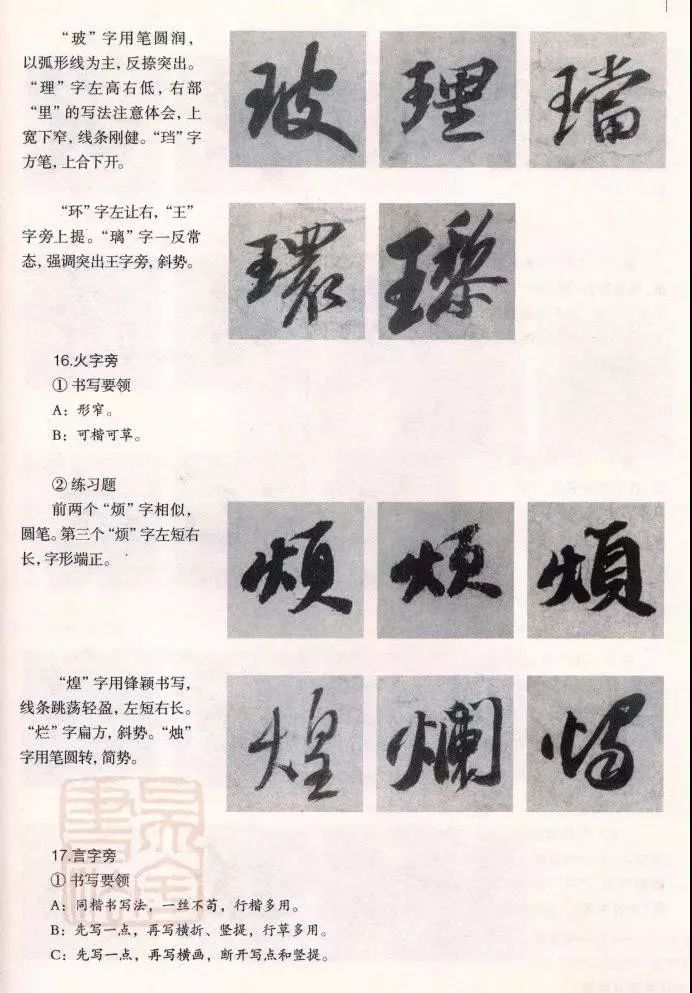 “玻”字用笔圆润，
以弧形线为主，反捺突出。
“理”字左高右低，右部
“里”的写法注意体会，上
宽下窄，线条刚健。“珰”字
方笔，上合下开。
玻 理 璫
“环”字左让右，“王”
字旁上提。“璃”字一反常
态，强调突出王字旁，斜势。
環 瓈
16.火字旁
① 书写要领
A：形窄。
B：可楷可草。
② 练习题
前两个“烦”字相似，
圆笔。第三个“烦”字左短右
长，字形端正。
煩 煩 煩
“煌”字用锋颖书写，
线条跳荡轻盈，左短右长。
“烂”字扁方，斜势。“烛”
字用笔圆转，简势。
煌 爛 燭
17.言字旁
① 书写要领
A：同楷书写法，一丝不苟，行楷多用。
B：先写一点，再写横折、竖提，行草多用。
C：先写一点，再写横画，断开写点和竖提。